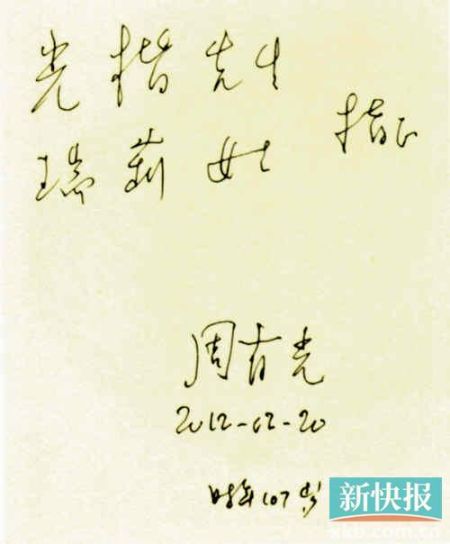 光楷先生
瑞莉女士
指正
周有光
2012-02-20
时年107岁
新快报
xkb.com.cn